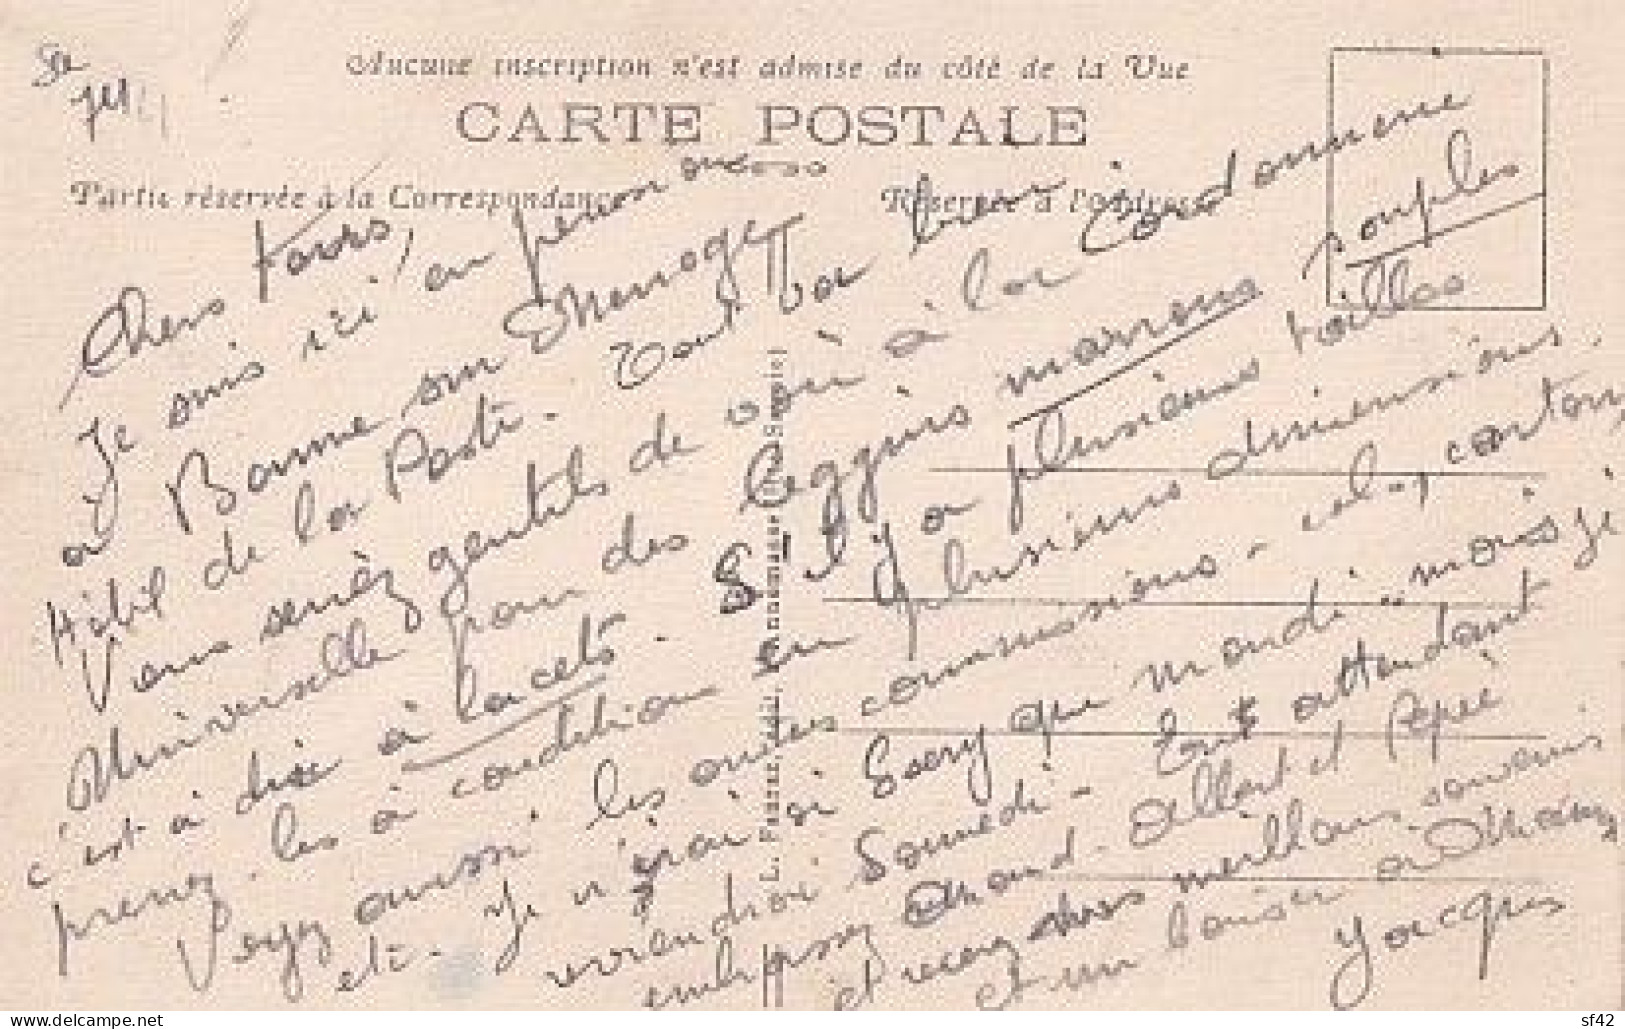 Aucune inscription n'est admise du côté de la Vue
CARTE POSTALE
Partie réservée à la Correspondance
Réservée à l'adresse
Chers
Je suis ici, en person
à Bonne sur Menoge
Hôtel de la Poste. Tout va bien
Vous seriez gentils de voir à la Cordonnerie
Universelle pour des leggins marrons souples
c'est à dire à lacets. S'il y a plusieurs tailles
prenez-les à condition en plusieurs dimensions.
Voyez aussi les autres commissions - col, carton,
etc. Je n'irai à que mardi mais je
reviendrai Samedi. Tout attendant
embrassez Albert et Pépé
et recevez mes meilleurs souvenirs
et un baiser à
Jacques
L. Annemasse (Hte-Savoie)
delcampe.net
sf42